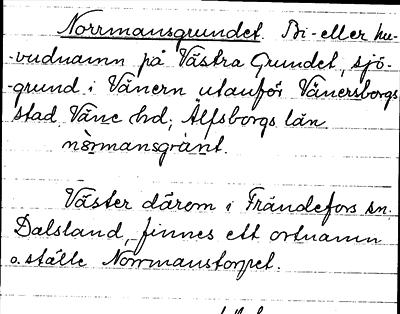 Norrmansgrundet. Bi- eller hu-
-vudnamn på Västra Grundet, sjö-
-grund i Vänern utanför Vänersborgs
stad, Väne hd, Älfsborgs län.
nòrmansgrànt.
Väster därom i Frändefors sn.
Dalsland, finnes ett ortnamn
o. ställe Norrmanstorpet.